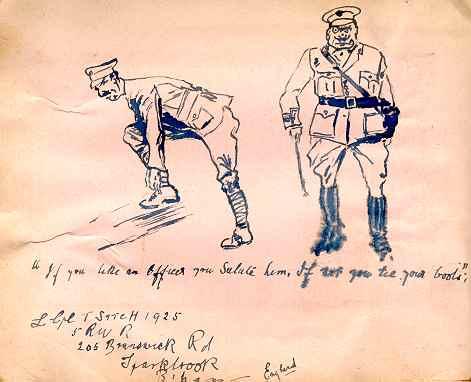 "If you like an Officer you Salute him, If not you tie your boots";
L Cpl T 1925
5 R W R
205 Brunswick Rd
Sparkbrook
B'ham England